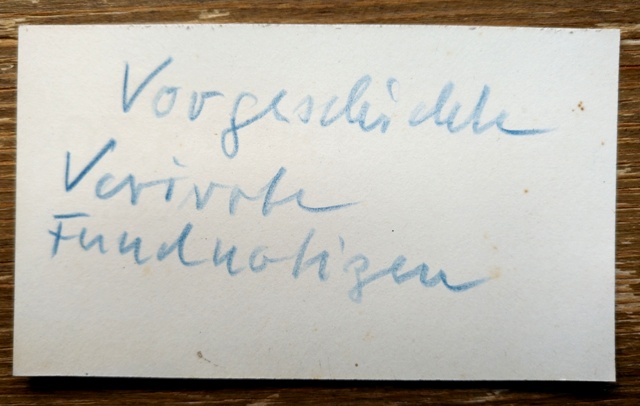 Vorgeschichte
Verirrte
Fundnotizen